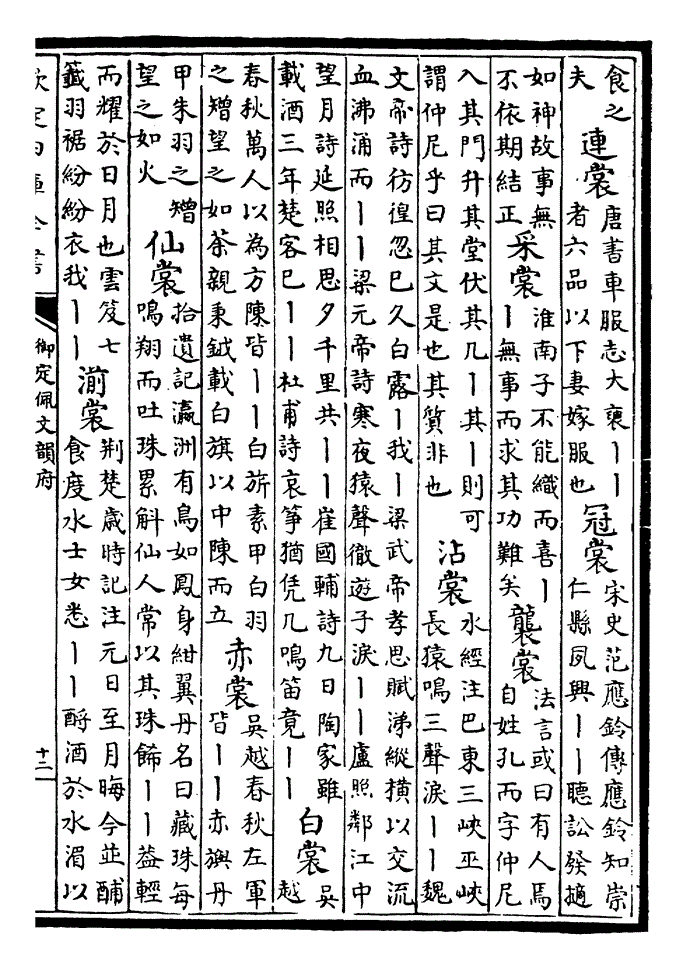 食之
夫
連裳
唐書車服志大裘丨丨
者六品以下妻嫁服也
冠裳
宋史范應鈴傳應鈴知崇
仁縣夙興丨丨聽訟發擿
如神故事無
不依期結正
采裳
淮南子不能織而喜丨
丨無事而求其功難矣
襲裳
法言或曰有人焉
自姓孔而字仲尼
入其門升其堂伏其几丨其丨則可
謂仲尼乎曰其文是也其質非也
沾裳
水經注巴東三峽巫峽
長猿鳴三聲淚丨丨魏
文帝詩彷徨忽已久白露丨我丨梁武帝孝思賦涕縱橫以交流
血沸涌而丨丨梁元帝詩寒夜猿聲徹遊子淚丨丨盧照鄰江中
望月詩延照相思夕千里共丨丨崔國輔詩九日陶家雖
載酒三年楚客已丨丨杜甫詩哀箏猶凭几鳴笛竟丨丨
白裳
吳
越
春秋萬人以為方陳皆丨丨白旂素甲白羽
之矰望之如荼親秉鉞載白旗以中陳而立
赤裳
吳越春秋左軍
皆丨丨赤旟丹
甲朱羽之矰
望之如火
仙裳
拾遺記瀛洲有鳥如鳳身紺翼丹名曰藏珠每
鳴翔而吐珠累斛仙人常以其珠飾丨丨蓋輕
而耀於日月也雲笈七
籤羽裾紛紛衣我丨丨
湔裳
荆楚歲時記注元日至月晦今並酺
食度水士女悉丨丨酹酒於水湄以
欽定四庫全書
御定佩文韻府
十二